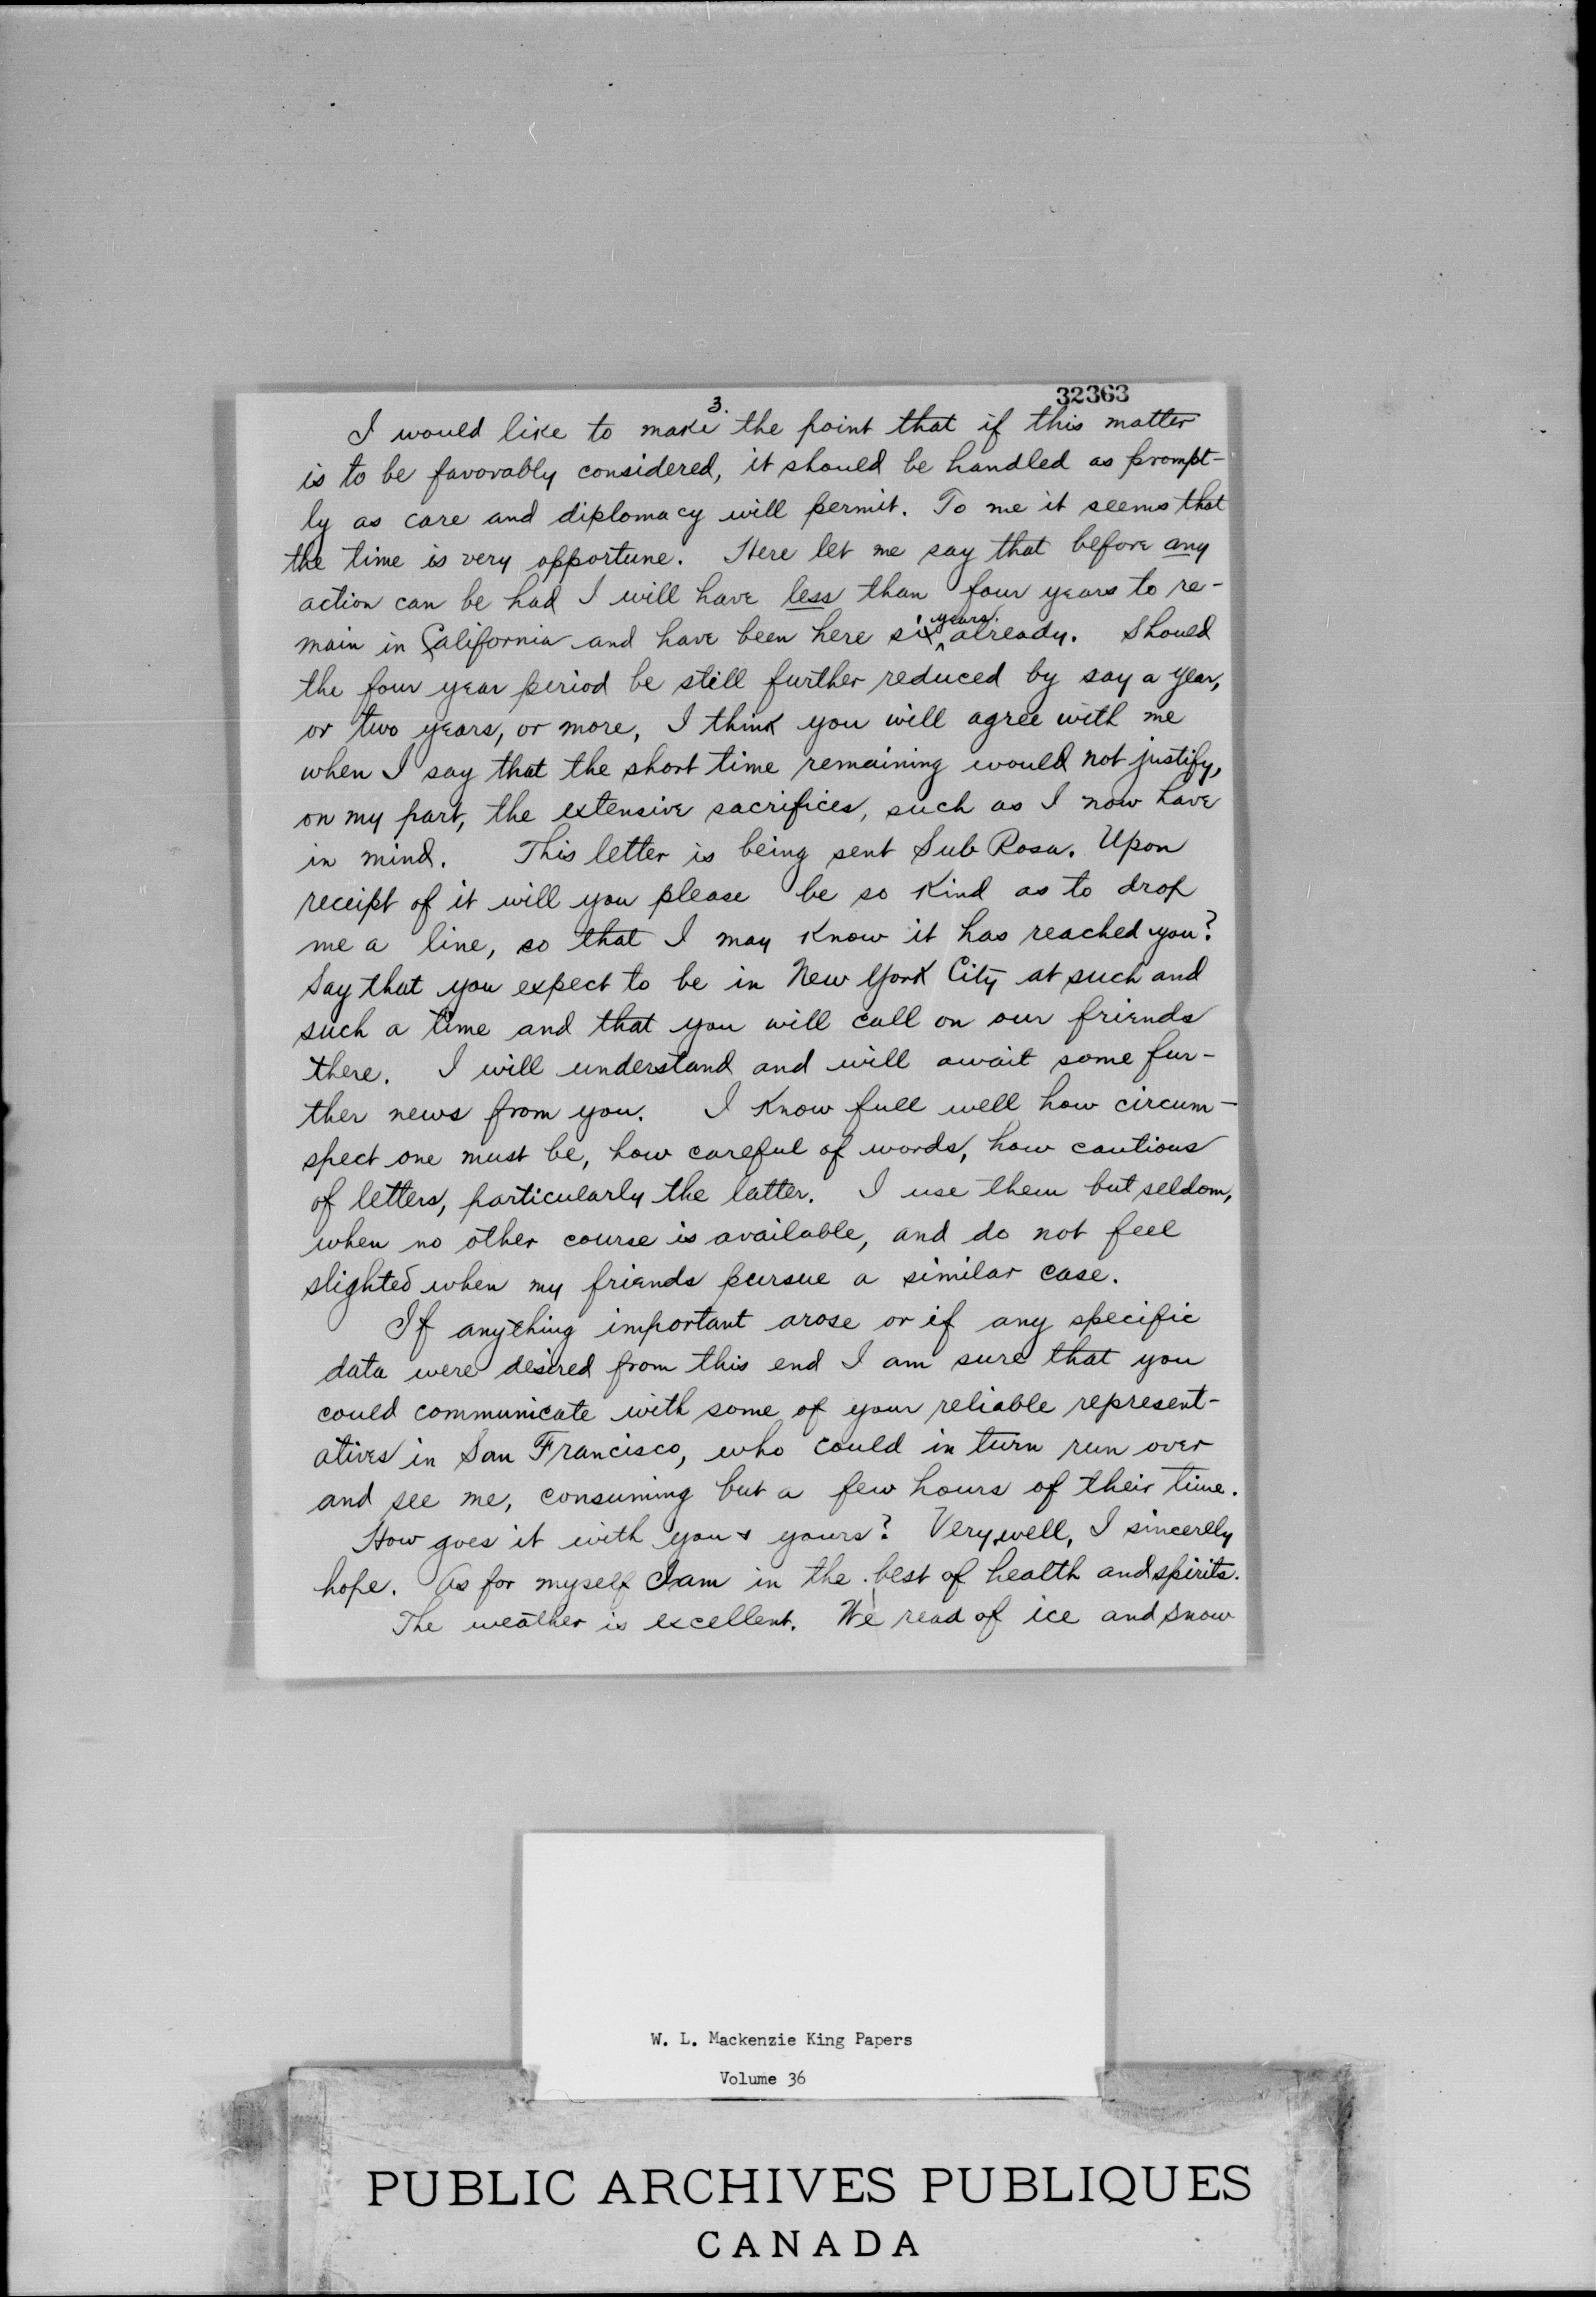 32363
3.
I would like to make the point that if this matter
is to be favorably considered, it should be handled as prompt-
ly as care and diplomacy will permit. To me it seems that
the time is very opportune. Here let me say that before any
action can be had I will have less than four years to re-
main in California and have been here six years already. Should
the four year period be still further reduced by say a year,
or two years, or more, I think you will agree with me
when I say that the short time remaining would not justify,
on my part, the extensive sacrifices, such as I now have
in mind. This letter is being sent Sub Rosa. Upon
receipt of it will you please be so kind as to drop
me a line, so that I may know it has reached you?
Say that you expect to be in New York City at such and
such a time and that you will call on our friends
there. I will understand and will await some fur-
ther news from you. I know full well how circum-
spect one must be, how careful of words, how cautious
of letters, particularly the latter. I use them but seldom,
when no other course is available, and do not feel
slighted when my friends pursue a similar case.
If anything important arose or if any specific
data were desired from this end I am sure that you
could communicate with some of your reliable represent-
atives in San Francisco, who could in turn run over
and see me, consuming but a few hours of their time.
How goes it with you & yours? Very well, I sincerely
hope. As for myself I am in the best of health and spirits.
The weather is excellent. We read of ice and snow
W. L. Mackenzie King Papers
Volume 36
PUBLIC ARCHIVES PUBLIQUES
CANADA